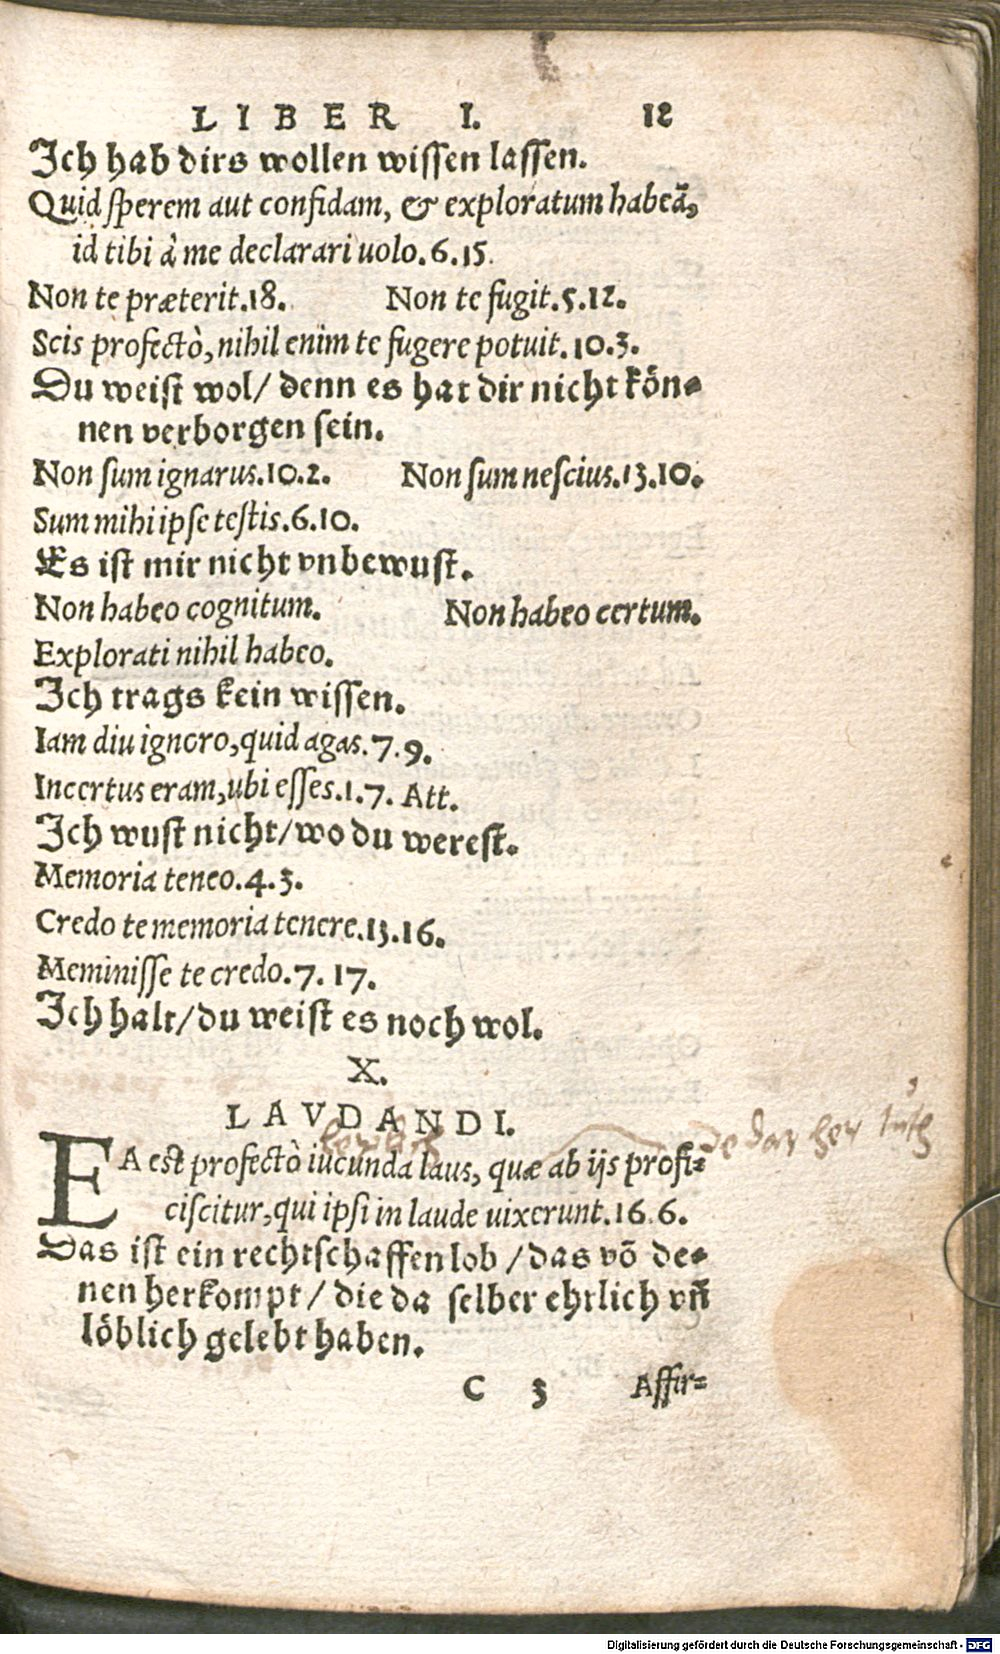 LIBER I. 12
Ich hab dirs wollen wissen lassen.
Quid sperem aut confidam, & exploratum habeā,
id tibi à me declarari uolo.6.15.
Non te præterit.18. Non te fugit.5.12.
Scis profectò, nihil enim te fugere potuit.10.3.
Du weist wol/ denn es hat dir nicht kön=
nen verborgen sein.
Non sum ignarus.10.2. Non sum nescius.13.10.
Sum mihi ipse testis.6.10.
Es ist mir nicht vnbewust.
Non habeo cognitum. Non habeo certum.
Explorati nihil habeo.
Ich trags kein wissen.
Iam diu ignoro, quid agas.7.9.
Incertus eram, ubi esses.1.7. Att.
Ich wust nicht/ wo du werest.
Memoria teneo.4.3.
Credo te memoria tenere.13.16.
Meminisse te credo.7.17.
Ich halt/ du weist es noch wol.
X.
LAVDANDI.
EA est profectò iucunda laus, quæ ab ijs profi=
ciscitur, qui ipsi in laude uixerunt.16.6.
Das ist ein rechtschaffen lob / das vō de=
nen herkompt / die da selber ehrlich vñ
löblich gelebt haben.
C 3 Affir=
Digitalisierung gefördert durch die Deutsche Forschungsgemeinschaft - DFG